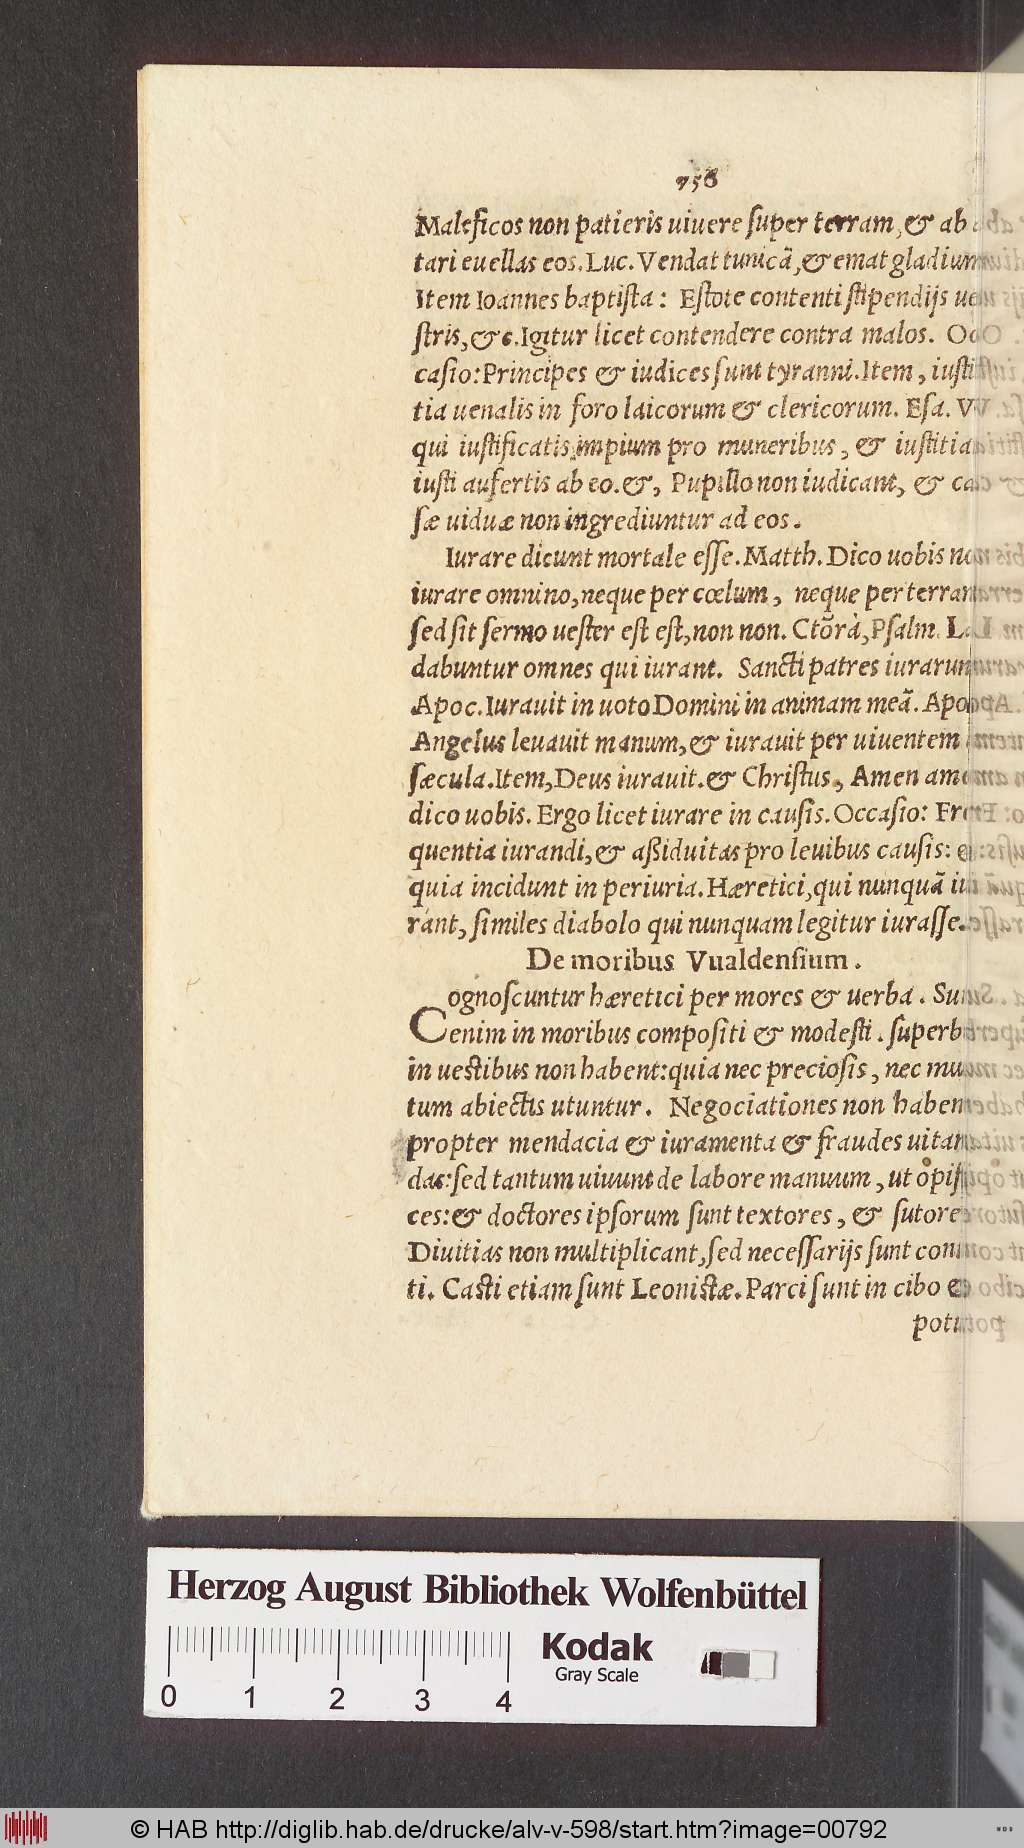 758
Maleficos non patieris uiuere super terram, & ab
tari euellas eos. Luc. Vendat tunicã, & emat gladium
Item Ioannes baptista: Estote contenti stipendijs ue
stris, &c. Igitur licet contendere contra malos. Oc
casio: Principes & iudices sunt tyranni. Item, iusti
tia uenalis in foro laicorum & clericorum. Esa. V
qui iustificatis impium pro muneribus, & iustitia
iusti aufertis ab eo. &, Pupillo non iudicant, & ca
sæ uiduæ non ingrediuntur ad eos.
Iurare dicunt mortale esse. Matth. Dico uobis no
iurare omnino, neque per cœlum, neque per terram
sed sit sermo uester est est, non non. Ctõrà, Psalm. La
dabuntur omnes qui iurant. Sancti patres iurarun
Apoc. Iurauit in uoto Domini in animam meã. Apoc
Angelus leuauit manum, & iurauit per uiuentem
sæcula. Item, Deus iurauit. & Christus, Amen ame
dico uobis. Ergo licet iurare in causis. Occasio: Fre
quentia iurandi, & aßiduitas pro leuibus causis: &
quia incidunt in periuria. Hæretici, qui nunquã iu
rant, similes diabolo qui nunquam legitur iurasse.
De moribus Vualdensium.
Cognoscuntur hæretici per mores & uerba. Sunt
enim in moribus compositi & modesti. superb
in uestibus non habent: quia nec preciosis, nec mul
tum abiectis utuntur. Negociationes non haben
propter mendacia & iuramenta & fraudes uitan
das: sed tantum uiuunt de labore manuum, ut opifi
ces: & doctores ipsorum sunt textores, & sutores
Diuitias non multiplicant, sed necessarijs sunt conten
ti. Casti etiam sunt Leonistæ. Parci sunt in cibo &
potu
Herzog August Bibliothek Wolfenbüttel
Kodak
Gray Scale
0 1 2 3 4
© HAB http://diglib.hab.de/drucke/alv-v-598/start.htm?image=00792